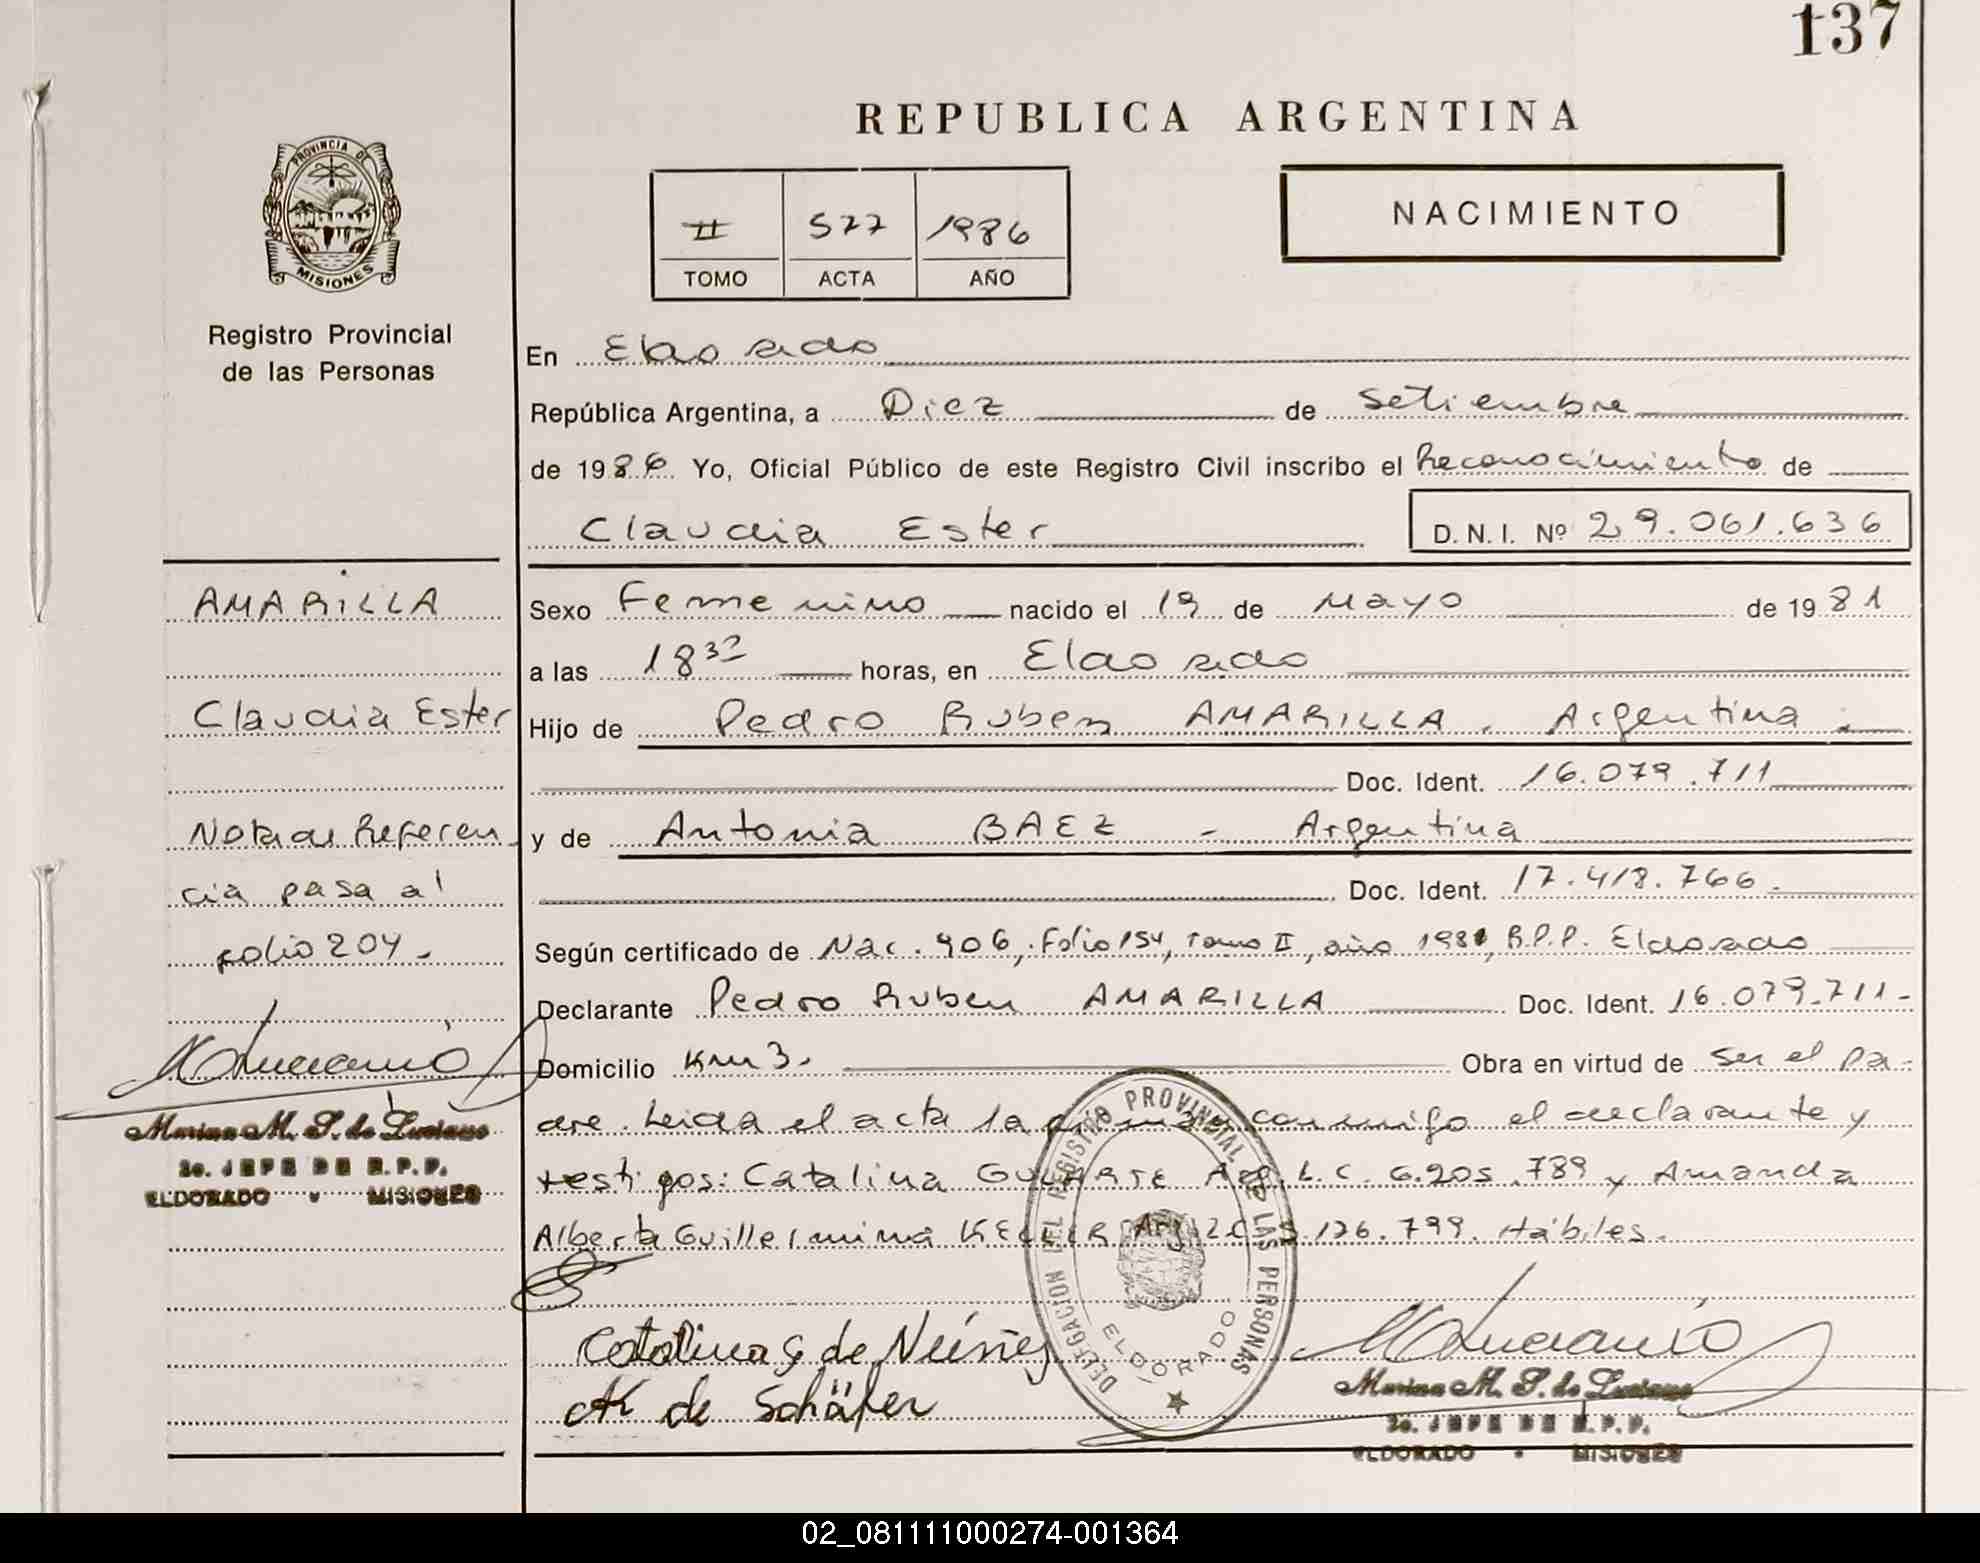 137
REPUBLICA ARGENTINA
PROVINCIA DE
MISIONES
Registro Provincial
de las Personas
II 577 1986
TOMO ACTA AÑO
NACIMIENTO
En Eldorado
República Argentina, a Diez de Setiembre
de 1986. Yo, Oficial Público de este Registro Civil inscribo el Reconocimiento de
Claudia Ester D. N. I. Nº 29.061.636
AMARILLA
Claudia Ester
Nota de Referen
cia pasa al
folio 204.
Marina M. S. de Luciano
2o. JEFE DE R.P.P.
ELDORADO - MISIONES
Sexo Femenino nacido el 19 de Mayo de 1981
a las 18 30 horas, en Eldorado
Hijo de Pedro Ruben AMARILLA. Argentina.
Doc. Ident. 16.079.711
y de Antonia BAEZ - Argentina
Doc. Ident. 17.418.766.
Según certificado de Nac. 906, Folio 154, Tomo II, año 1981, R.P.P. Eldorado
Declarante Pedro Ruben AMARILLA Doc. Ident. 16.079.711-
Domicilio Km 3. Obra en virtud de ser el pa-
dre. Leida el acta la firman conmigo el declarante y
testigos: Catalina GUIARTE Arg. L.C. 6.205.789 y Amanda
Alberta Guillermina KELLER Arg. L.C. 5.126.799. Hábiles.
Catalina G de Núñez
AK de Schäfer
DELEGACION DEL REGISTRO PROVINCIAL DE LAS PERSONAS
ELDORADO
Marina M. S. de Luciano
2o. JEFE DE R.P.P.
ELDORADO - MISIONES
02_081111000274-001364